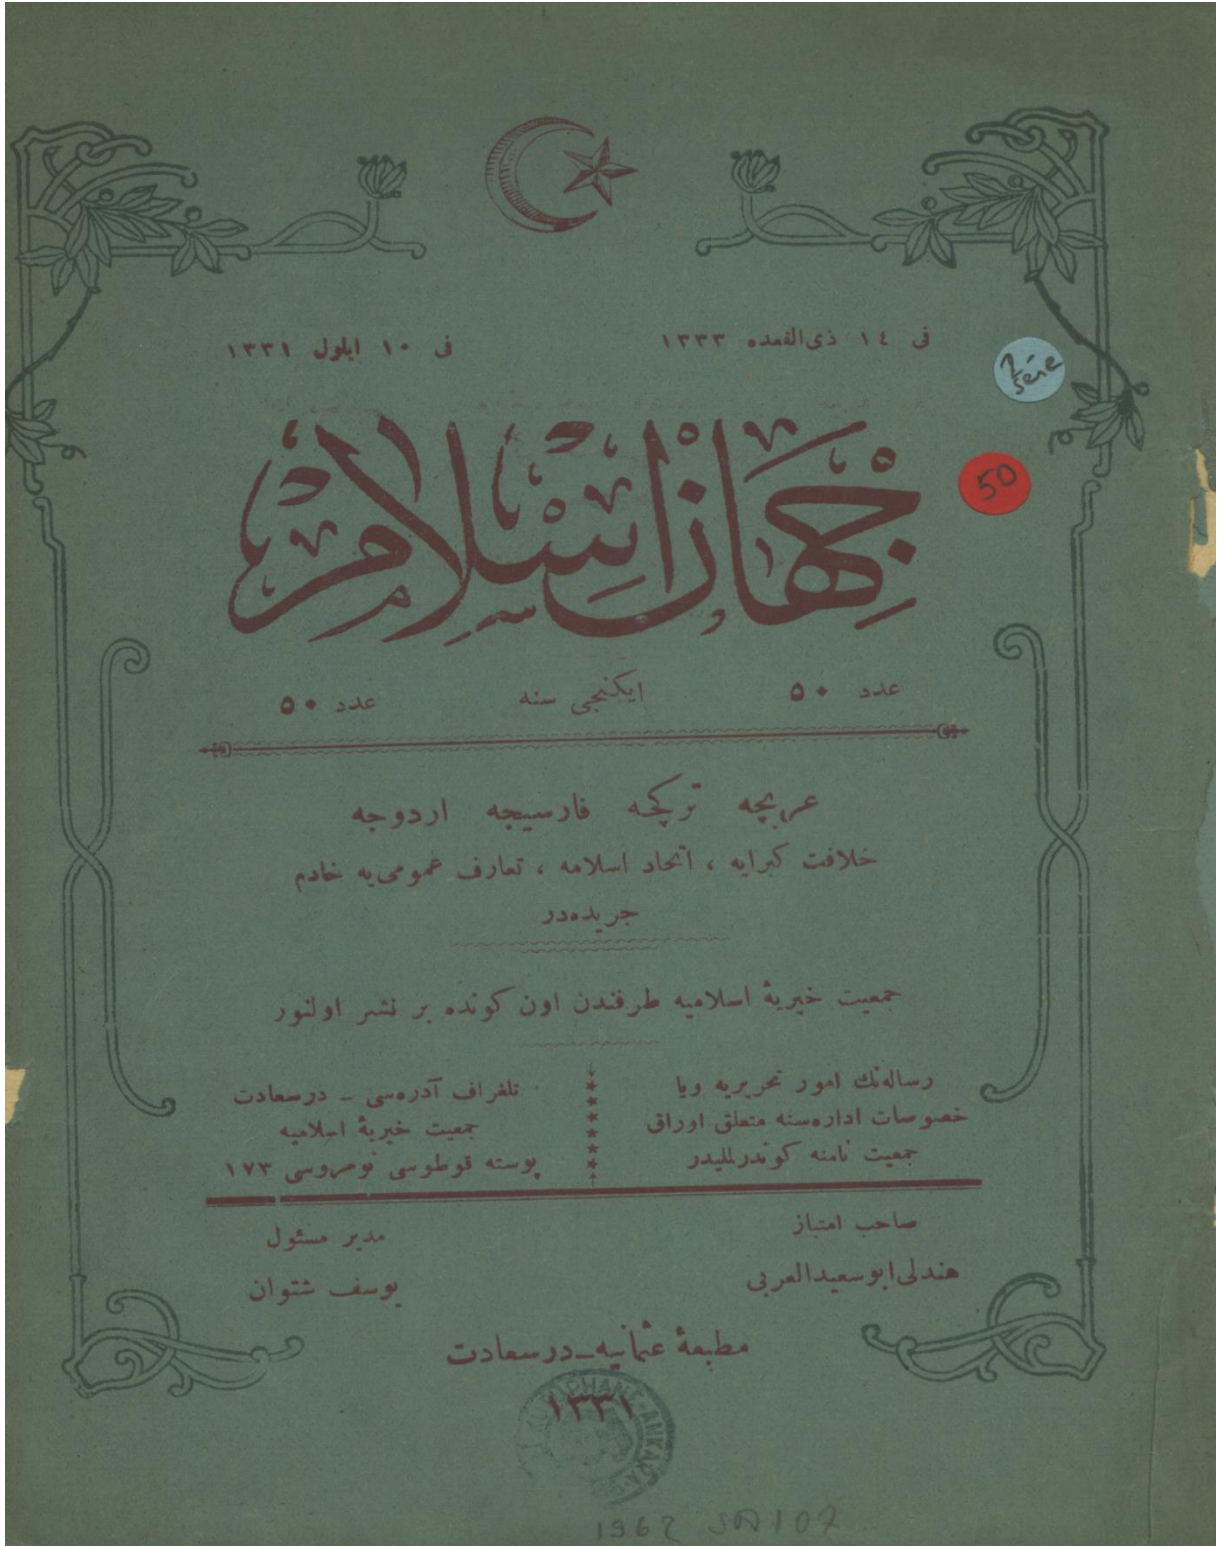 فی ١٤ ذی القعده ١٣٣٣
فی ١٠ ایلول ١٣٣١
2. sene
جهان اسلام
50
عدد ٥٠
ایکنجی سنه
عدد ٥٠
عربچه ترکچه فارسیجه اردوجه
خلافت کبرایه ، اتحاد اسلامه ، تعارف عمومی‌یه خادم
جریده‌در
جمعیت خیریهٔ اسلامیه طرفندن اون کونده بر نشر اولنور
رساله‌نك امور تحریریه ویا
خصوصات اداره‌سنه متعلق اوراق
جمعیت نامنه کوندرللیدر
تلغراف آدره‌سی ـ درسعادت
جمعیت خیریهٔ اسلامیه
پوسته قوطوسی نومروسی ١٧٣
صاحب امتیاز
هندلی ابو سعید العربی
مدیر مسئول
یوسف شتوان
مطبعهٔ عثمانیه ـ درسعادت
١٣٣١
1962 SA 107